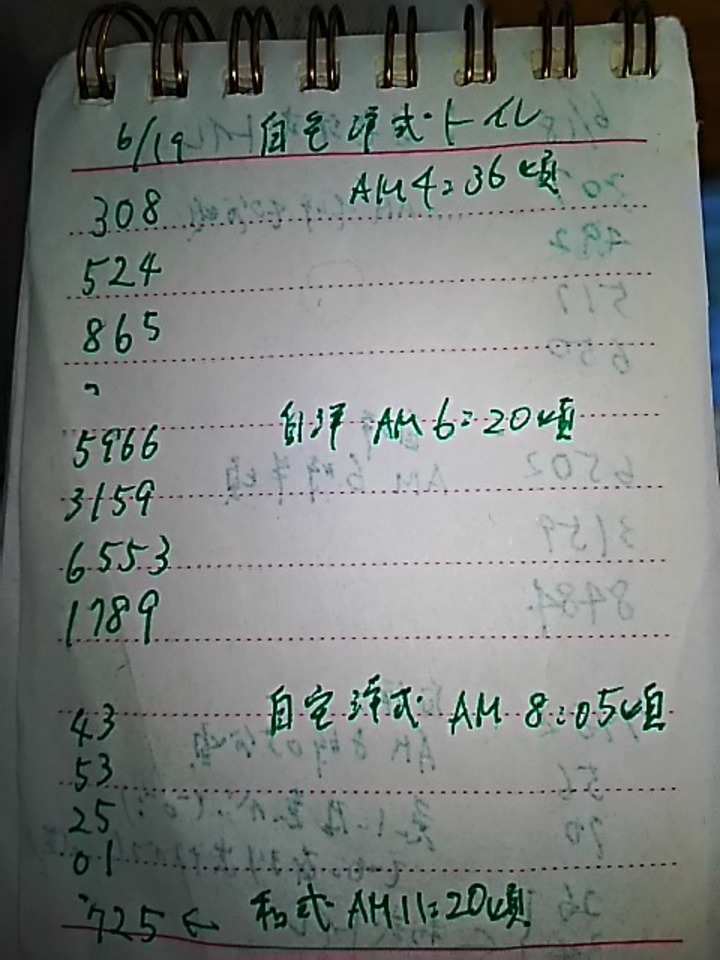 6/19 自宅洋式トイレ
308 AM4:36頃
524
865
〃
5966 自洋 AM6:20頃
3159
6553
1789
43 自宅洋式 AM8:05頃
53
25
01
725 ← 和式 AM11:20頃